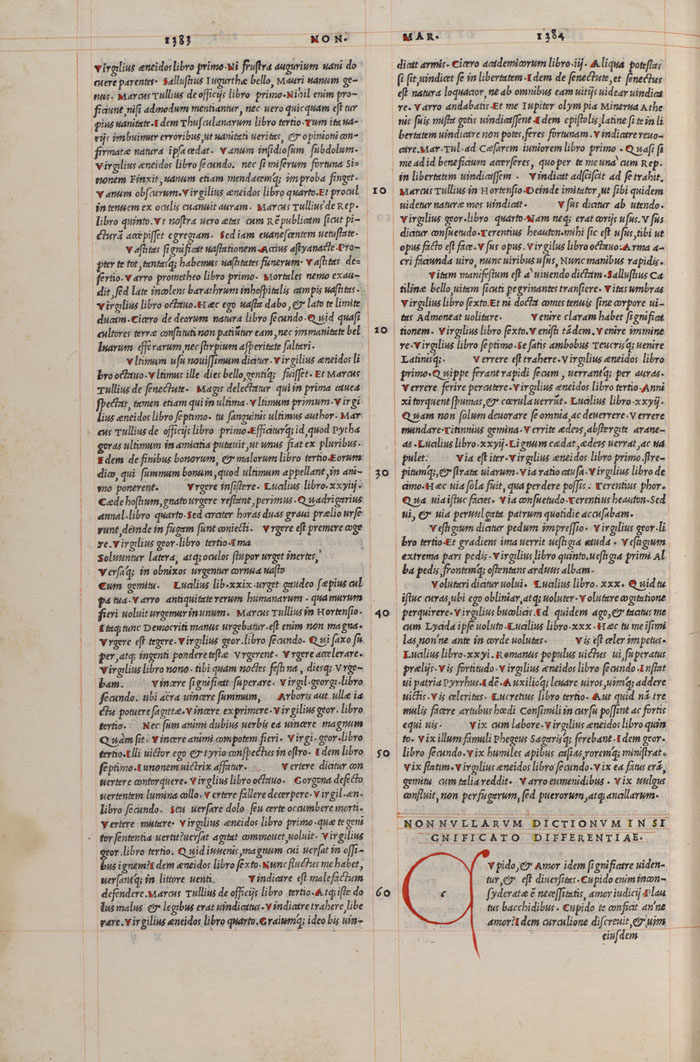 1383 NON.
MAR. 1384
Virgilius æneidos libro primo. Ni frustra augurium uani do
cuere parentes. Sallustius Iugurthæ bello, Mauri uanum ge-
nus. Marcus Tullius de officijs libro primo. Nihil enim pro-
ficiunt, nisi admodum mentiantur, nec uero quicquam est tur
pius uanitate. Idem Thusculanarum libro tertio. Tum ita ua-
rijs imbuimur erroribus, ut uanitati ueritas, & opinioni con-
firmatæ natura ipsa cedat. Vanum insidiosum subdolum.
Virgilius æneidos libro secundo. nec si miserum fortuna Si-
nonem Finxit, uanum etiam mendacemq; improba finget.
Vanum obscurum. Virgilius æneidos libro quarto. Et procul
in tenuem ex oculis euanuit auram. Marcus Tullius de Rep.
libro quinto. Vt nostra uero ætas cum Rēpublicam sicut pi-
cturā accepisset egregiam. Sed iam euanescentem uetustate.
Vastitas significat uastationem. Accius astyanacte. Pro-
pter te tot, tantasq; habemus uastitates funerum. Vastitas de-
sertio. Varro prometheo libro primo. Mortales nemo exau-
dit, sed late incolens barathrum inhospitalis campis uastites.
Virgilius libro octauo. Hæc ego uasta dabo, & lato te limite
ducam. Cicero de deorum natura libro secundo. Quid quasi
cultores terræ constituti non patiūtur eam, nec immanitate bel
luarum efferarum, nec stirpium asperitate saltari.
Vltimum usu nouissimum dicitur. Virgilius æneidos li
bro octauo. Vltimus ille dies bello, gentiq; fuisset. Et Marcus
Tullius de senectute. Magis delectatur qui in prima cauea
spectat, tamen etiam qui in ultima. Vltimum primum. Virgi
lius æneidos libro septimo. tu sanguinis ultimus author. Mar
cus Tullius de officijs libro primo. Efficiturq; id, quod Pytha
goras ultimum in amicitia putauit, ut unus fiat ex pluribus.
Idem de finibus bonorum, & malorum libro tertio. Eorum
dico, qui summum bonum, quod ultimum appellant, in ani-
mo ponerent. Vrgere insistere. Lucilius lib. xxviij.
Cæde hostium, gnato urgere restant, perimus. Quadrigarius
annal. libro quarto. Sed circiter horas duas graui prælio urse
runt, deinde in fugam sunt coniecti. Vrgere est premere coge
re. Virgilius geor. libro tertio. Ima
Soluuntur latera, atq; oculos stupor urget inertes,
Versaq; in obnixos urgentur cornua uasto
Cum gemitu. Lucilius lib. xxix. urget gaudeo sæpius cul
pa tua. Varro antiquitate rerum humanarum. qua murum
fieri uoluit urgemur in unum. Marcus Tullius in Hortensio.
Itaq; tunc Democriti manus urgebatur. est enim non magna.
Vrgere est tegere. Virgilius geor. libro secundo. Qui saxo su
per, atq; ingenti pondere testæ Vrgerent. Vrgere accelerare.
Virgilius libro nono. tibi quam noctes festina, diesq; Vrge-
bam. Vincere significat superare. Virgil. georgi. libro
secundo. ubi aëra uincere summum, Arboris aut ullæ ia
ctu potuere sagittæ. Vincere exprimere. Virgilius geor. libro
tertio. Nec sum animi dubius uerbis ea uincere magnum
Quàm sit. Vincere animi compotem fieri. Virgi. geor. libro
tertio. Illi uictor ego & tyrio conspectus in ostro. Idem libro
septimo. Iunonem uictrix affatur. Vertere dicitur con
uertere contorquere. Virgilius libro octauo. Gorgona defecto
uertentem lumina collo. Vertere fallere decerpere. Virgil. æn.
libro secundo. Seu uersare dolo seu certe occumbere morti.
Vertere mutare. Virgilius æneidos libro primo. quæ te geni
tor sententia uertit? uersat agitat commouet, uoluit. Virgilius
geor. libro tertio. Quid iuuenis, magnum cui uersat in ossi-
bus ignem? Idem æneidos libro sexto. Nunc fluctus me habet,
uersantq; in littore uenti. Vindicare est malefactum
defendere. Marcus Tullius de officijs libro tertio. Atq; iste do
lus malus & legibus erat uindicatus. Vindicare trahere, libe
rare. Virgilius æneidos libro quarto. Graiumq; ideo bis uin-
10
10
30
40
50
60
dicat armis. Cicero academicorum libro. iij. Aliqua potestas
si sit, uindicet se in libertatem. Idem de senectute, et senectus
est natura loquacior, ne ab omnibus eam uitijs uidear uindica
re. Varro andabatis. Et me Iupiter olympia Minerua Athe
nis suis mistagotis uindicassent. Idem epistolis, latine si te in li
bertatem uindicare non potes, feres fortunam. Vindicare reuo-
care. Mar. Tul. ad Cæsarem iuniorem libro primo. Quasi si
me ad id beneficium accerseres, quo per te una cum Rep.
in libertatem uindicassem. Vindicat adsciscit ad se trahit.
Marcus Tullius in Hortensio. Deinde imitator, ut sibi quidem
uidetur naturæ mos uindicat. Vsus dicitur ab utendo.
Virgilius geor. libro quarto. Nam neq; erat corijs usus. Vsus
dicitur consuetudo. Terentius heauton. mihi sic est usus, tibi ut
opus facto est face. Vsus opus. Virgilus libro octauo. Arma a-
cri facienda uiro, nunc uiribus usus, Nunc manibus rapidis.
Vitam manifestum est à uiuendo dictam. Sallustius Ca
tilinæ bello, uitam sicuti pegrinantes transiere. Vitas umbras
Virgilius libro sexto. Et ni docta comes tenuis sine corpore ui-
tas Admoneat uolitare. Venire claram habet significa
tionem. Virgilius libro sexto. Venisti tādem. Venire imminere
re. Virgilius libro septimo. Se satis ambobus Teucrisq; uenire
Latinisq; Verrere est trahere. Virgilius æneidos libro
primo. Quippe ferant rapidi secum, uerrantq; per auras.
Verrere ferire percutere. Virgilius æneidos libro tertio. Anni
xi torquent spumas, & cœrula uerrūt. Lucilius libro. xxij.
Quam non solum deuorare se omnia, ac deuerrere. Verrere
mundare. Titinnius gemina. Verrite ædeis, abstergite arane-
as. Lucilius libro. xxij. Lignum cædat, ædeis, uerrat, ac ua
pulet: Via est iter. Virgilius æneidos libro primo. stre-
pitumq;, & strata uiarum. Via ratio causa. Virgilius libro de
cimo. Hæc uia sola fuit, qua perdere possis. Terentius phor.
Qua uia istuc facies. Via consuetudo. Terentius heauton. Sed
ui, & uia peruulgata patrum quotidie accusabam.
Vestigium dicitur pedum impressio. Virgilius geor. li
bro tertio. Et gradiens ima uerrit uestigia cauda. Vestigium
extrema pars pedis. Virgilius libro quinto. uestigia primi Al
ba pedis, frontemq; ostentans arduus albam.
Volutari dicitur uolui. Lucilius libro. xxx. Quid tu
istuc curas, ubi ego obliniar, atq; uoluter. Volutare cogitatione
perquirere. Virgilius bucolicis. Id quidem ago, & tacitus me
cum Lycida ipse uoluto. Lucilius libro. xxx. Hæc tu me isimi
las, non'ne ante in corde uolutas. Vis est celer impetus.
Lucilius libro. xxyi. Romanus populus uictus ui, superatus
prælijs. Vis fortitudo. Virgilius æneidos libro secundo. Instat
ui patria Pyrrhus. Idē. Auxilioq; leuare uiros, uimq; addere
uictis. Vis celeritas. Lucretius libro tertio. Aut quid nā tre
mulis facere artubus hœdi Consimili in cursu possint ac fortis
equi uis. Vix cum labore. Virgilius æneidos libro quin
to. Vix illum famuli Phegeus Sagarisq; ferebant. Idem geor.
libro secundo. Vix humiles apibus casias, roremq; ministrat.
Vix statim. Virgilius æneidos libro secundo. Vix ea fatus erā,
gemitu cum talia reddit. Varro eumenidibus. Vix uulgus
confluit, non per fugarum, sed puerorum, atq; ancillarum.
NONNVLLARVM DICTIONVM IN SI
GNIFICATO DIFFERENTIAE.
Cupido, & Amor idem significare uiden-
tur, & est diuersitas. Cupido enim incon-
syderatæ ē necessitatis, amor iudicij. Plau
tus bacchidibus. Cupido te conficit an'ne
amor? Idem curculione discreuit, & uim
eiusdem